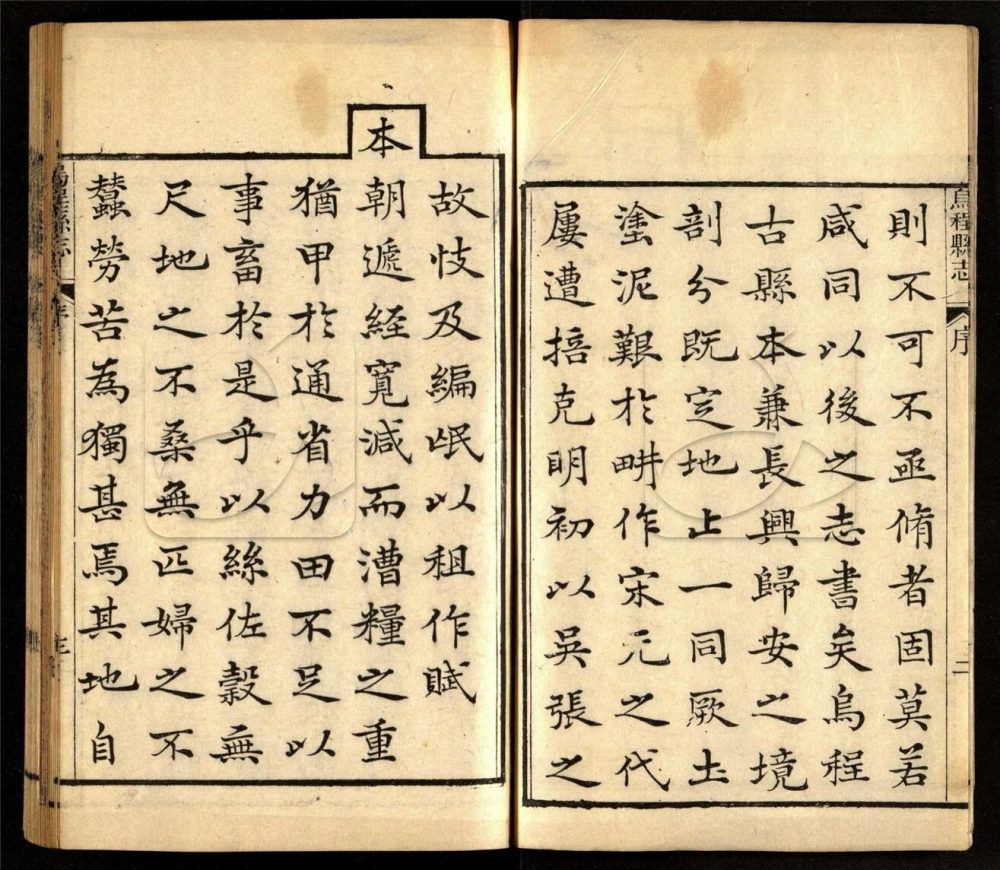 烏程縣志
序
二
則不可不亟脩者固莫若
咸同以後之志書矣烏程
古縣本兼長興歸安之境
剖分既定地止一同厥土
塗泥艱於畊作宋元之代
屢遭掊克明初以吳張之
故忮及編氓以租作賦
本朝遞經寬減而漕糧之重
猶甲於通省力田不足以
事畜於是乎以絲佐穀無
尺地之不桑無匹婦之不
蠶勞苦為獨甚焉其地自